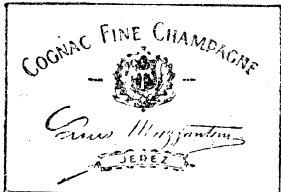 COGNAC FINE CHAMPAGNE
Mazzantini
JEREZ